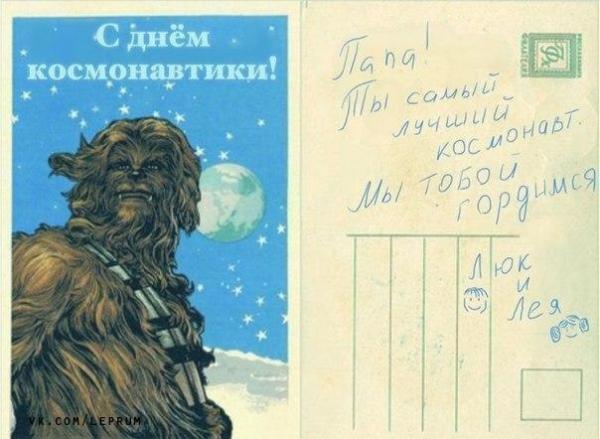 С днём
космонавтики!
VK.COM/LEPRUM
Папа!
Ты самый
лучший
космонавт.
Мы тобой
гордимся
Люк
и
Лея